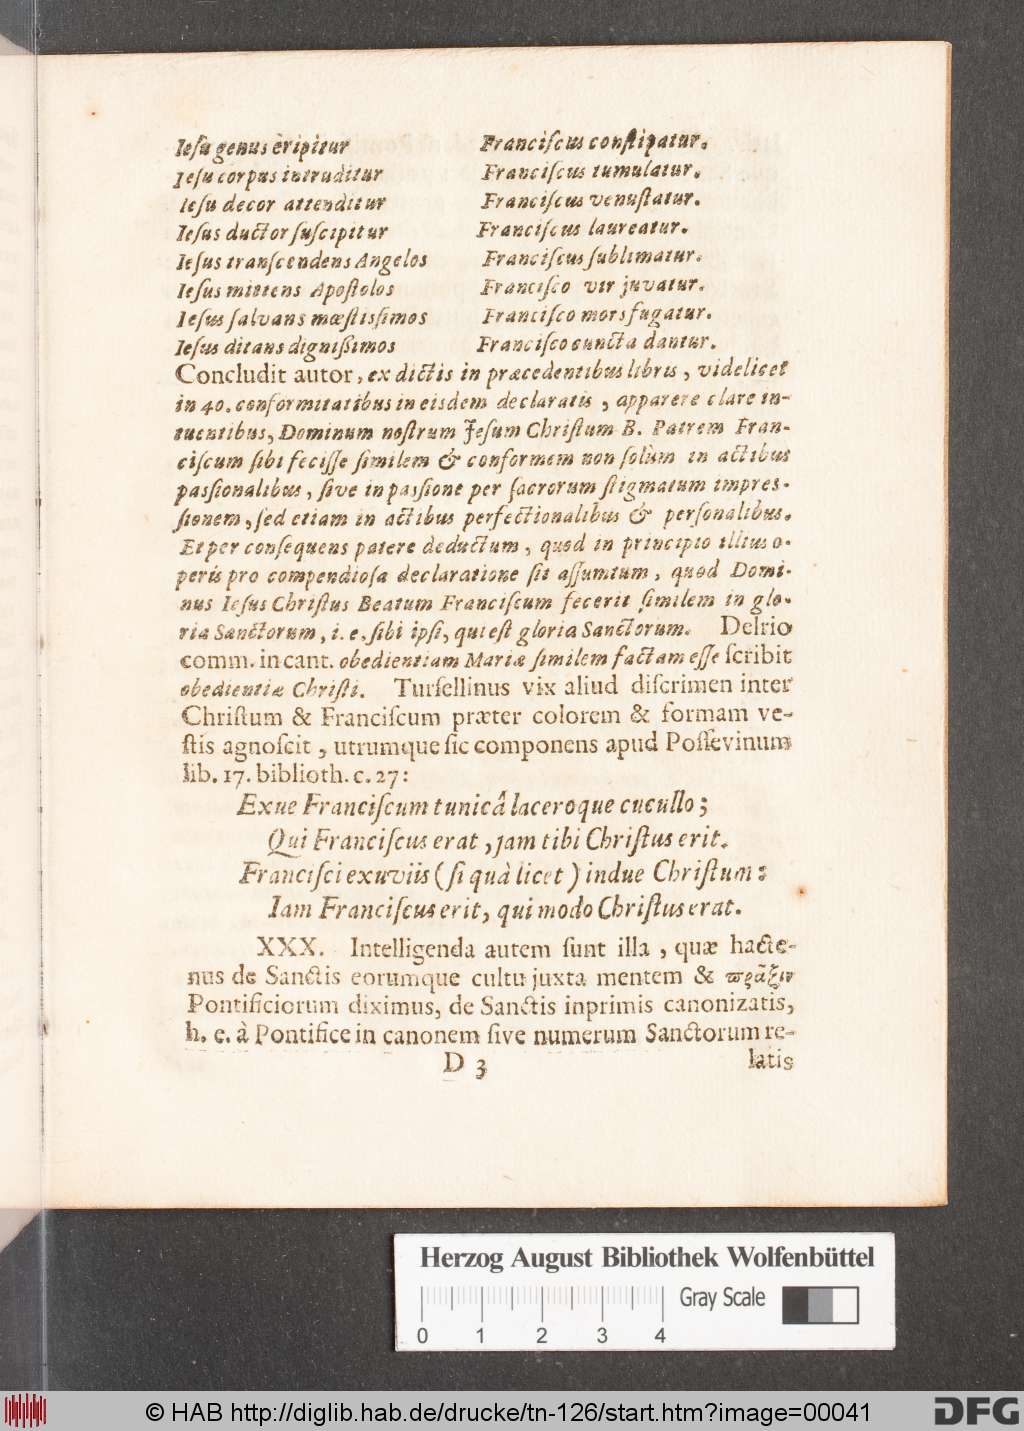 Ieſu genus èripitur Franciſcus conſtipatur.
Ieſu corpus intruditur Franciſcus tumulatur.
Ieſu decor attenditur Franciſcus venuſtatur.
Ieſus ductor ſuſcipitur Franciſcus laureatur.
Ieſus tranſcendens Angelos Franciſcus ſublimatur.
Ieſus mittens Apoſtolos Franciſco vir juvatur.
Ieſus ſalvans mœſtiſſimos Franciſco mors fugatur.
Ieſus ditans digniſſimos Franciſco cuncta dantur.
Concludit autor, ex dictis in præcedentibus libris, videlicet
in 40. conformitatibus in eisdem declaratis, apparere clare in-
tuentibus, Dominum noſtrum Jeſum Chriſtum B. Patrem Fran-
ciſcum ſibi feciſſe ſimilem & conformem non ſolùm in actibus
paſſionalibus, ſive in paſſione per ſacrorum ſtigmatum impres-
ſionem, ſed etiam in actibus perfectionalibus & perſonalibus.
Et per conſequens patere deductum, quod in principio illius o-
peris pro compendioſa declaratione ſit aſſumtum, quod Domi-
nus Ieſus Chriſtus Beatum Franciſcum fecerit ſimilem in glo-
ria Sanctorum, i. e. ſibi ipſi, qui eſt gloria Sanctorum. Delrio
comm. in cant. obedientiam Mariæ ſimilem factam eſſe ſcribit
obedientiæ Chriſti. Turſellinus vix aliud diſcrimen inter
Chriſtum & Franciſcum præter colorem & formam ve-
ſtis agnoſcit, utrumque ſic componens apud Poſſevinum
lib. 17. biblioth. c. 27:
Exue Franciſcum tunicâ laceroque cucullo;
Qui Franciſcus erat, jam tibi Chriſtus erit.
Franciſci exuviis (ſi quà licet) indue Chriſtum:
Iam Franciſcus erit, qui modo Chriſtus erat.
XXX. Intelligenda autem ſunt illa, quæ hacte-
nus de Sanctis eorumque cultu juxta mentem & ϖρᾶξιν
Pontificiorum diximus, de Sanctis inprimis canonizatis,
h. e. à Pontifice in canonem ſive numerum Sanctorum re-
D 3 latis
Herzog August Bibliothek Wolfenbüttel
Gray Scale
0 1 2 3 4
© HAB http://diglib.hab.de/drucke/tn-126/start.htm?image=00041
DFG